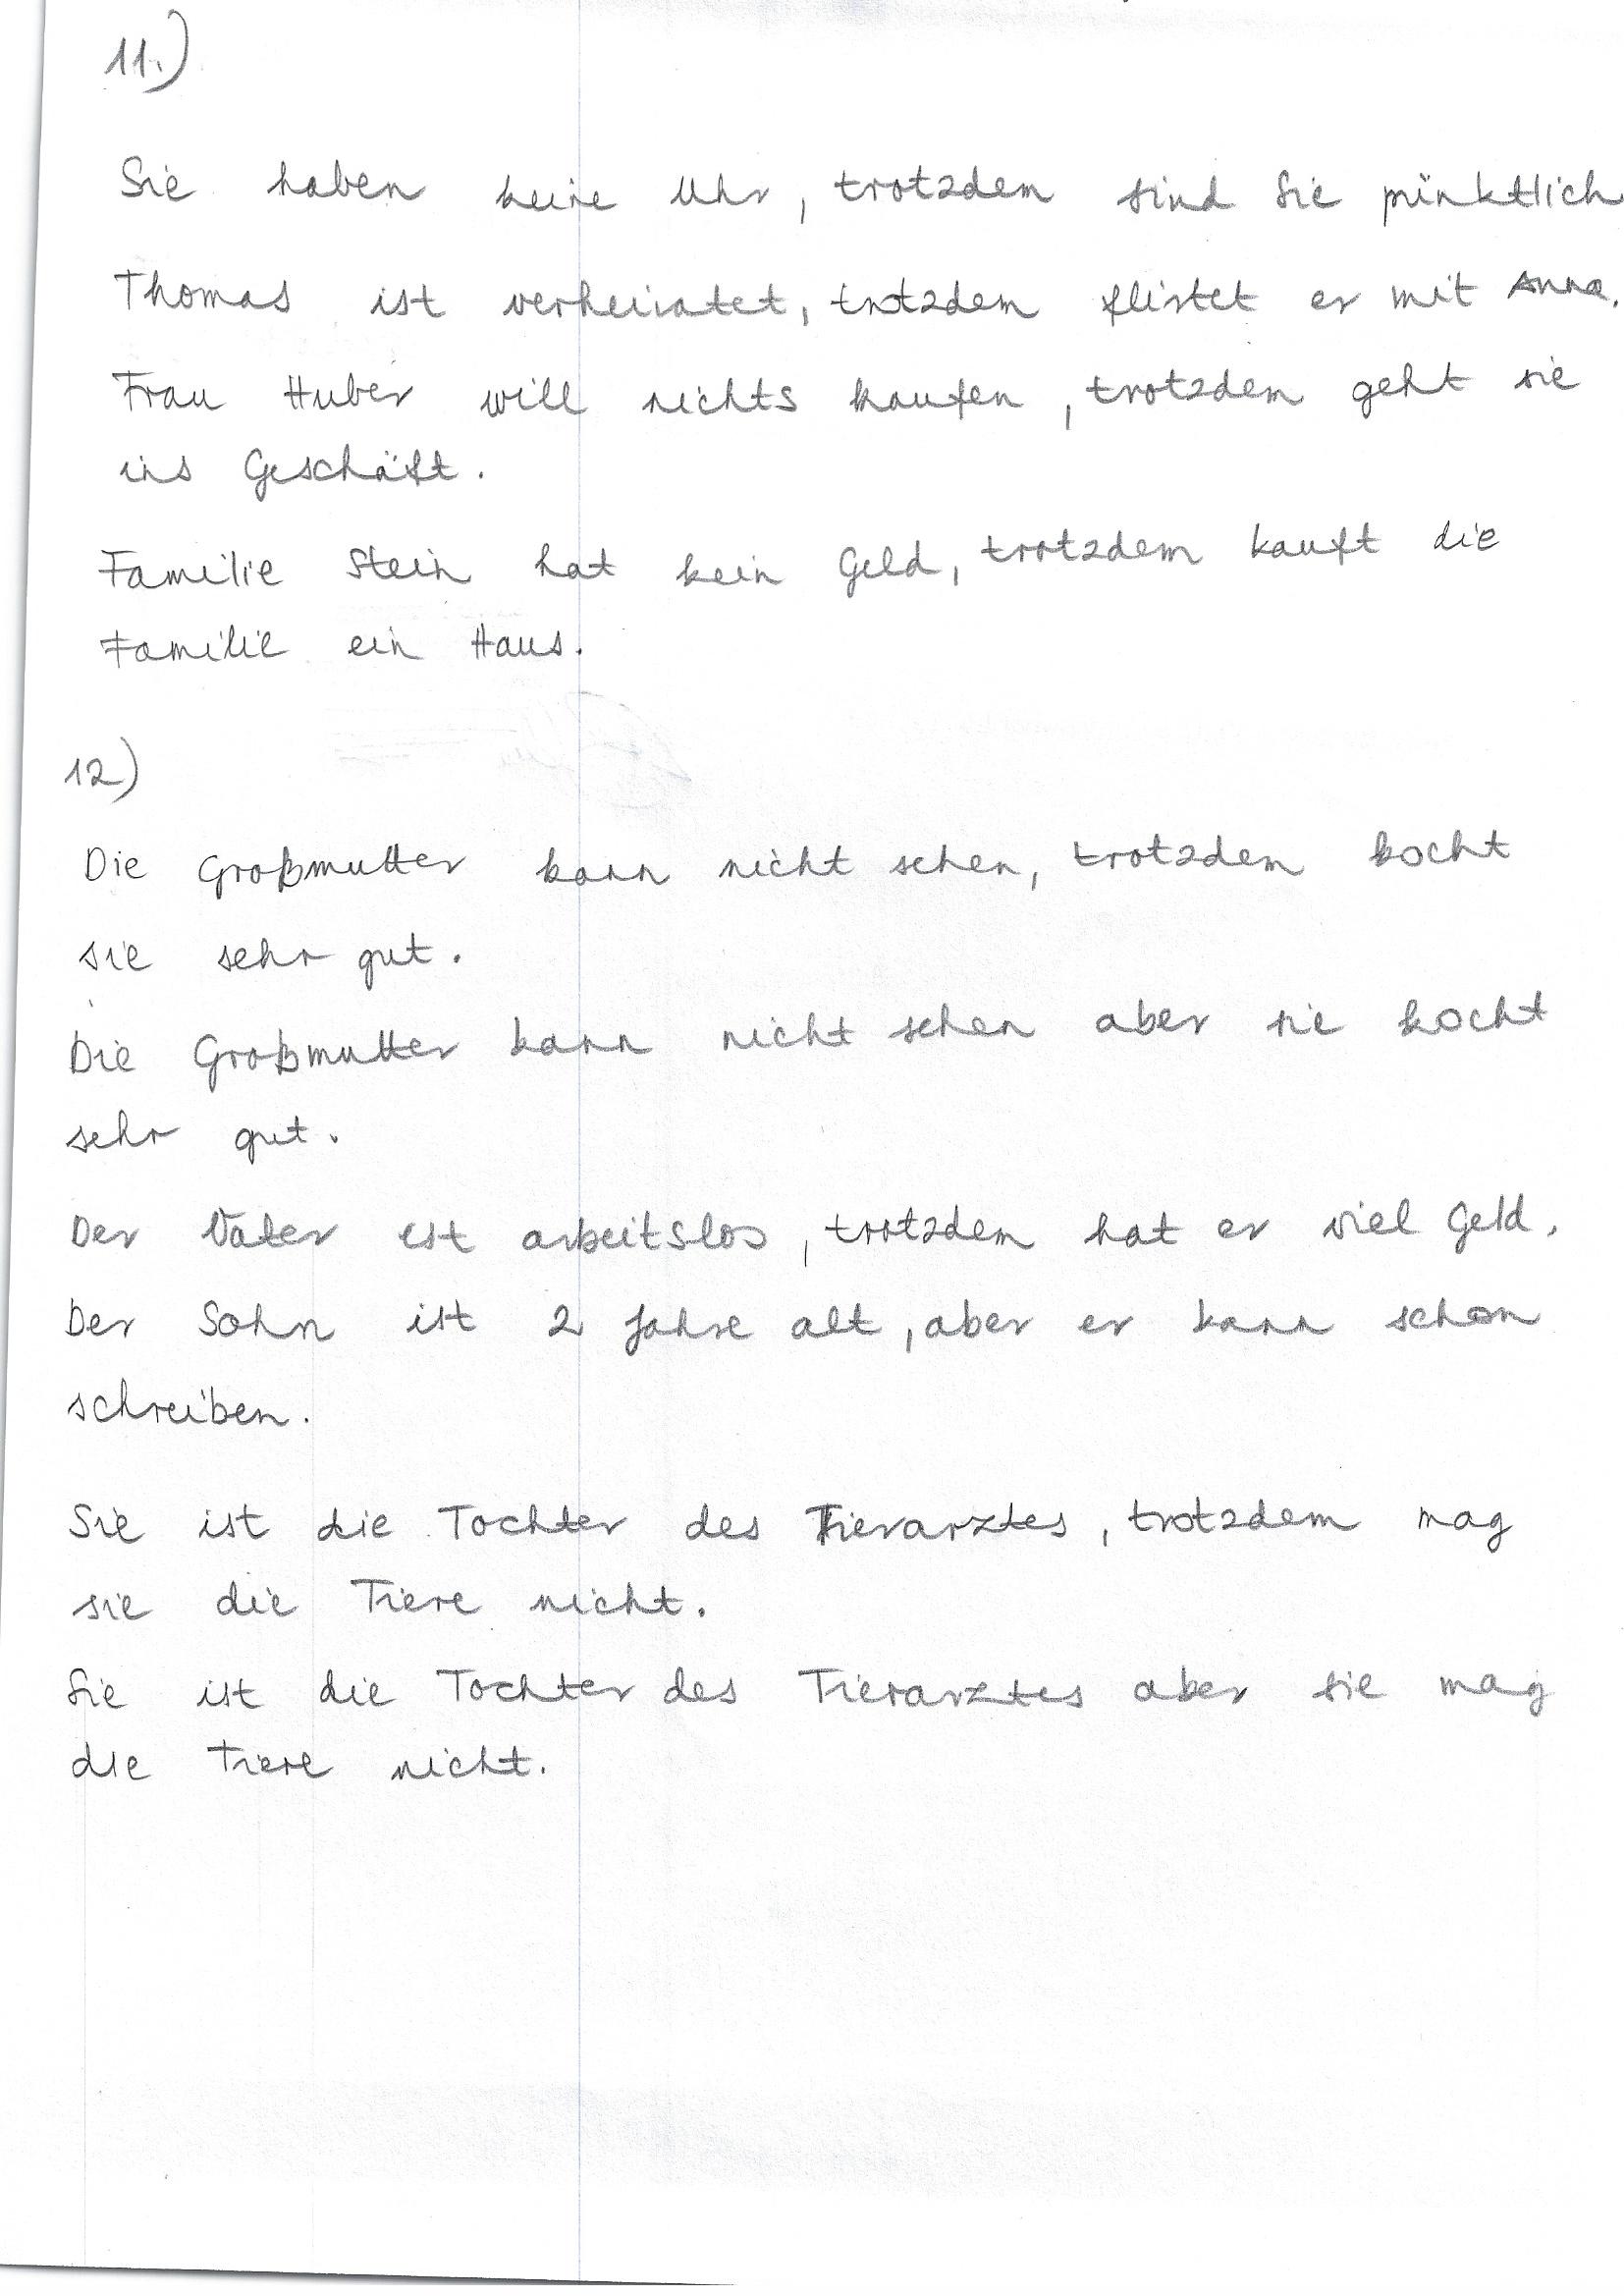 11.)
Sie haben keine Uhr, trotzdem sind Sie pünktlich
Thomas ist verheiratet, trotzdem flirtet er mit Anna.
Frau Huber will nichts kaufen, trotzdem geht sie
ins Geschäft.
Familie Stein hat kein Geld, trotzdem kauft die
Familie ein Haus.
12)
Die Großmutter kann nicht sehen, trotzdem kocht
sie sehr gut.
Die Großmutter kann nicht sehen aber sie kocht
sehr gut.
Der Vater ist arbeitslos, trotzdem hat er viel Geld.
Der Sohn ist 2 Jahre alt, aber er kann schon
schreiben.
Sie ist die Tochter des Tierarztes, trotzdem mag
sie die Tiere nicht.
Sie ist die Tochter des Tierarztes aber sie mag
die Tiere nicht.